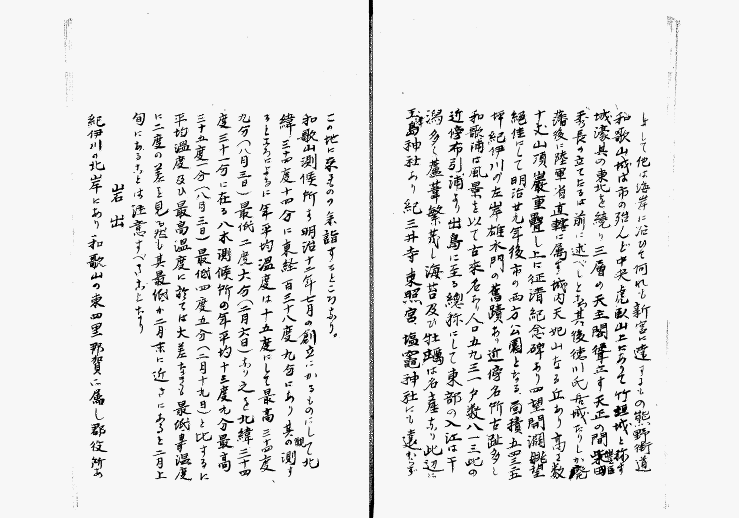 よして他は海岸に沿ひて何れも新宮に達するもの熊野街道
和歌山城は市の殆んど中央虎臥山上にありて竹垣城と称す
城濠其の東北を繞り三層の天主閣聳立す天正の間豊臣
秀長の立てたるは前に述べしとゝろ其後徳川氏居城たりしが廃
藩後に陸軍省直轄に属す城内天妃山なる丘あり高さ数
十丈山頂巌重畳し上に征清紀念碑あり四望開濶眺望
絶佳にして明治廿九年後市の西方公園となる面積五四三五
坪紀伊川の左岸雄水門の舊蹟あり近傍名所古趾多し
和歌浦は風景を以て古来名あり人口五九三一戸数八一三此の
近傍布引浦より出島に至る総称にして東部の入江は干
潟多く蘆葦繁茂し海苔及び牡蠣は名産なり此辺に
玉津島神社あり紀三井寺東照宮塩竈神社にも遠からず
この地に来ものゝ参詣するところなり。
和歌山測候所は明治十二年七月の創立にかゝるものにして北
緯三十四度十四分に東経百三十八度九分にあり其の観測す
るところによるに年平均温度は十五度にして最高三十四度、
九分(八月三日)最低二度六分(二月六日)なり之を北緯三十四
度三十一分に在る八木測候所の年平均十三度九分最高
三十五度一分(八月三日)最低四度五分(二月十九日)と比するに
平均温度及び最高温度に於ては大差なきも最低温度
に二度の差を見る然し其最低が二月末に近きにあると二月上
旬にあることは注意すべきことなり
岩出
紀伊川の北岸にあり和歌山の東四里那賀に属し郡役所あ